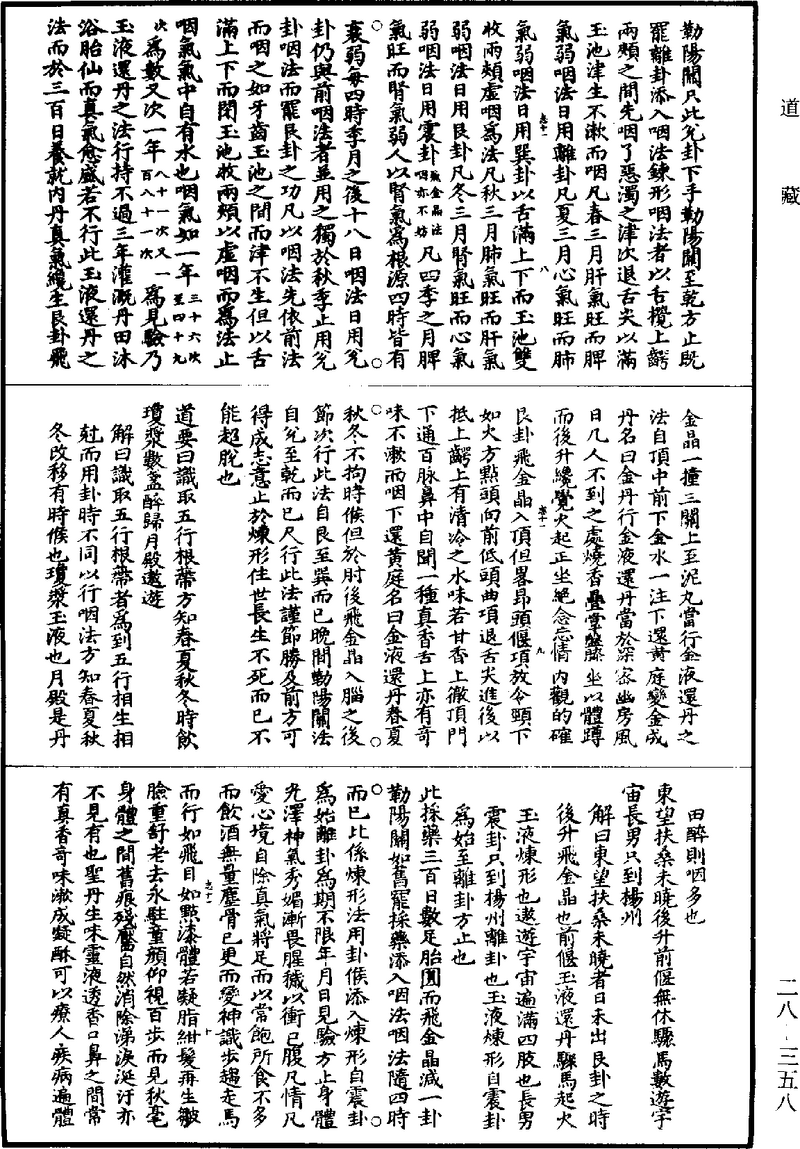 道藏
勒陽關只此兊卦下手勒陽關至乾方止既
罷離卦添入咽法鍊形咽法者以舌攪上齶
兩頰之間先咽了惡濁之津次退舌尖以滿
玉池津生不漱而咽凡春三月肝氣旺而脾
氣弱咽法日用離卦凡夏三月心氣旺而肺
氣弱咽法日用巽卦以舌滿上下而玉池雙
收兩頰虛咽爲法凡秋三月肺氣旺而肝氣
弱咽法日用艮卦凡冬三月腎氣旺而心氣
弱咽法日用震卦凡四季之月脾
氣旺而腎氣弱人以腎氣爲根源四時皆有
衰弱每四時季月之後十八日咽法日用兊
卦仍與前咽法者並用之獨於秋季止用兊
卦咽法而罷艮卦之功凡以咽法先依前法
而咽之如牙齒玉池之間而津不生但以舌
滿上下而閉玉池收兩頰以虛咽而爲法止
咽氣氣中自有水也咽氣如一年三十六次至四十九
次爲數又次一年八十一次又一百八十一次爲見驗乃
玉液還丹之法行持不過三年灌溉丹田沐
浴胎仙而真氣愈盛若不行此玉液還丹之
法而於三百日養就内丹真氣纔生艮卦飛
金晶一撞三關上至泥丸當行金液還丹之
法自頂中前下金水一注下還黃庭變金成
丹名曰金丹行金液還丹當於深密幽房風
日凡人不到之處燒香疊掌盤膝坐以體蹲
而後升纔覺火起正坐絶念忘情内觀的確
艮卦飛金晶入頂但畧昂頭偃項放令頸下
如火方點頭向前低頭曲項退舌尖進後以
抵上齶上有清冷之水味若甘香上徹頂門
下通百脉鼻中自聞一種真香舌上亦有奇
味不漱而咽下還黃庭名曰金液還丹春夏
秋冬不拘時候但於肘後飛金晶入腦之後
節次行此法自艮至巽而已晚間勒陽關法
自兊至乾而已凡行此法謹節勝及前方可
得成志意止於煉形住世長生不死而已不
能超脫也
道要曰識取五行根蔕方知春夏秋冬時飲
瓊漿數盞醉歸月殿遨遊
解曰識取五行根蔕者爲到五行相生相
尅而用卦時不同以行咽法方知春夏秋
冬改移有時候也瓊漿玉液也月殿是丹
田醉則咽多也
東望扶桑未曉後升前偃無休驟馬數遊宇
宙長男只到楊州
解曰東望扶桑未曉者日未出艮卦之時
後升飛金晶也前偃玉液還丹驟馬起火
玉液煉形也遨遊宇宙遍滿四肢也長男
震卦只到楊州離卦也玉液煉形自震卦
爲始至離卦方止也
此採藥三百日數足胎圓而飛金晶減一卦
勒陽關如舊罷採藥添入咽法咽法隨四時
而已比係煉形法用卦候添入煉形自震卦
爲始離卦爲期不限年月日見驗方止身體
光澤神氣秀媚漸畏腥穢以衝已腹凡情凡
愛心境自除真氣將足而以常飽所食不多
而飲酒無量塵骨已更而變神識步趨走馬
而行如飛目如點漆體若凝脂紺髮再生皺
臉重舒老去永駐童顏仰視百步而見秋毫
身體之間舊痕殘靨自然消除涕淚涎汙亦
不見有也聖丹生味靈液透香口鼻之間常
有真香奇味漱成凝酥可以療人疾病遍體
二八‐三五八